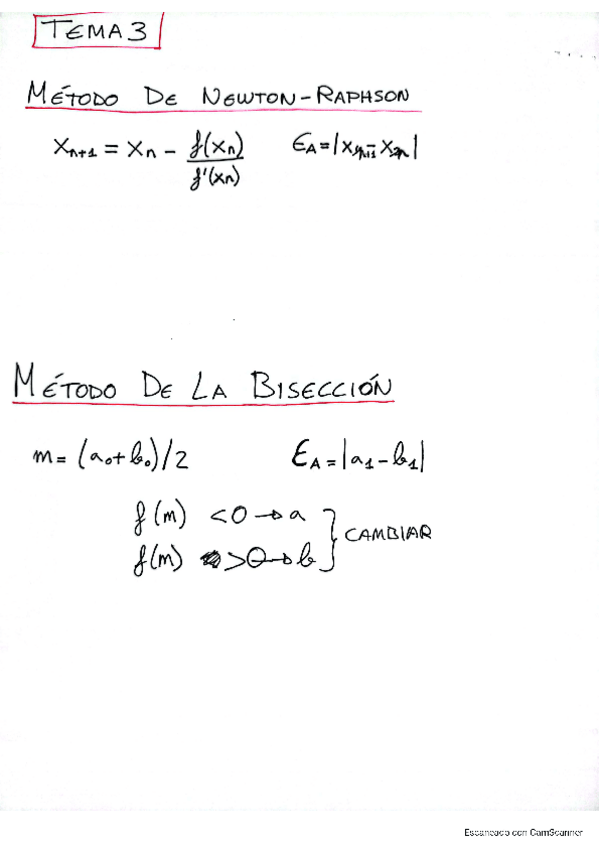 TEMA 3
MÉTODO DE NEWTON-RAPHSON
Xn+1 = Xn - f(Xn)/f'(Xn) EA = |Xn+1 - Xn|
MÉTODO DE LA BISECCIÓN
m = (a0 + b0)/2 EA = |a1 - b1|
f(m) <0 → a
f(m) >0 → b } CAMBIAR
Escaneado con CamScanner